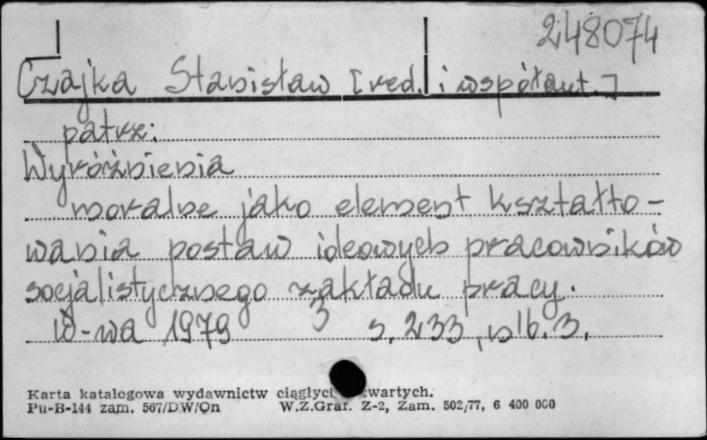 248074
Czajka Stanisław [red. i współaut.]
patrz:
Wyróżnienia
moralne jako element kształto-
wania postaw ideowych pracowników
socjalistycznego zakładu pracy.
W-wa 1979 s. 233, nlb. 3.
Karta katalogowa wydawnictw ciągłych zwartych.
Pu-B-144 zam. 567/DW/On W.Z.Graf. Z-2, Zam. 502/77, 6 400 000